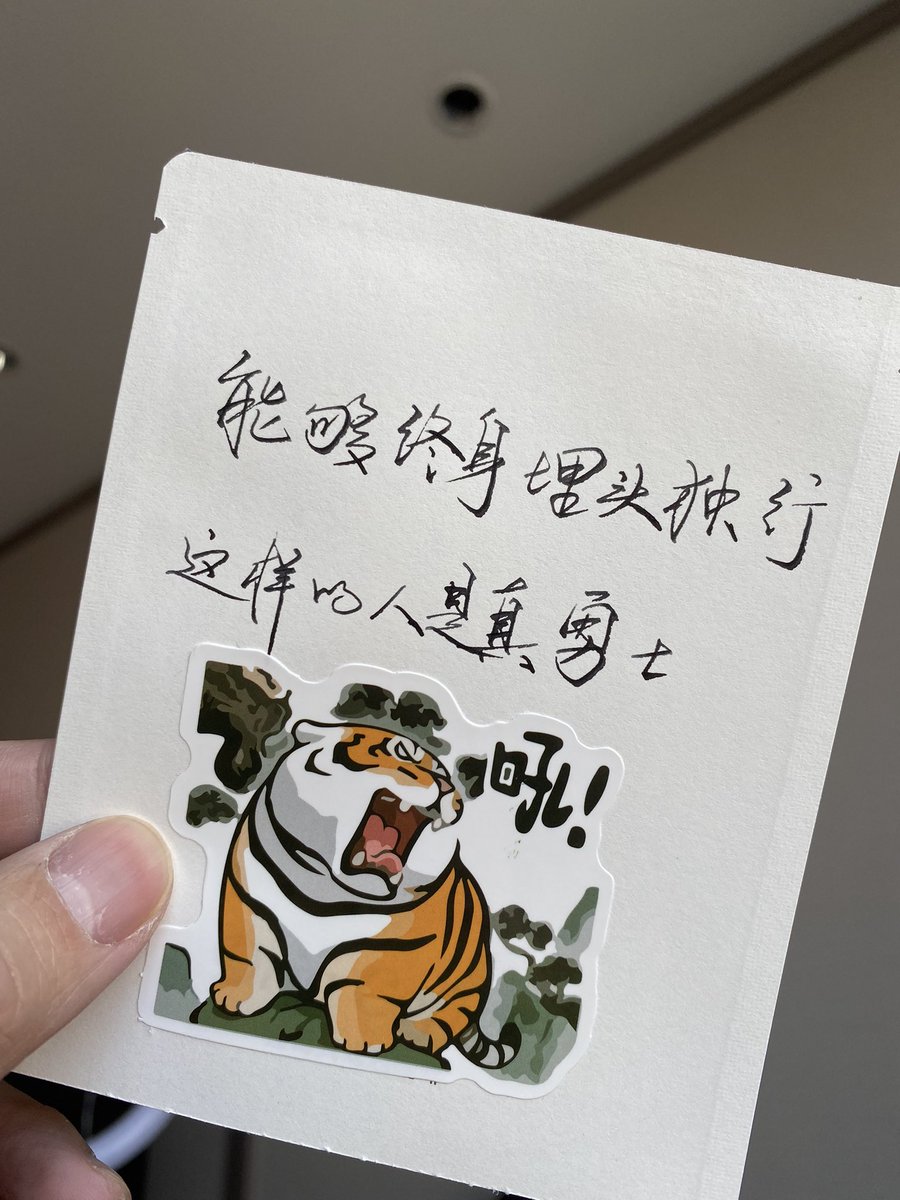 能够终身埋头独行
这样的人是真勇士
吼!